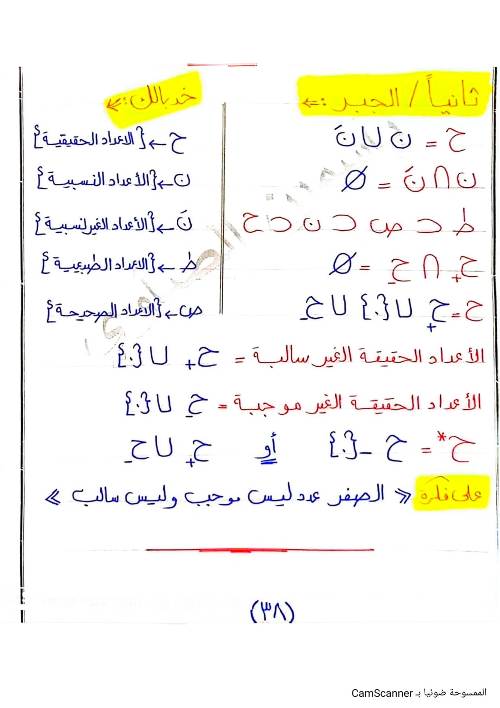 ثانياً / الجبر :←
ح = ن ∪ نَ
ن ∩ نَ = ∅
ط ⊂ ص ⊂ ن ⊂ ح
ح₊ ∩ ح₋ = ∅
ح = ح₊ ∪ {٠} ∪ ح₋
خد بالك :←
ح ← {الاعداد الحقيقية}
ن ← {الأعداد النسبية}
نَ ← {الأعداد الغير نسبية}
ط ← {الاعداد الطبيعية}
ص ← {الاعداد الصحيحة}
الأعداد الحقيقة الغير سالبة = ح₊ ∪ {٠}
الأعداد الحقيقة الغير موجبة = ح₋ ∪ {٠}
ح* = ح - {٠} أو ح₊ ∪ ح₋
على فكرة « الصفر عدد ليس موجب وليس سالب »
(٣٨)
الممسوحة ضوئيا بـ CamScanner